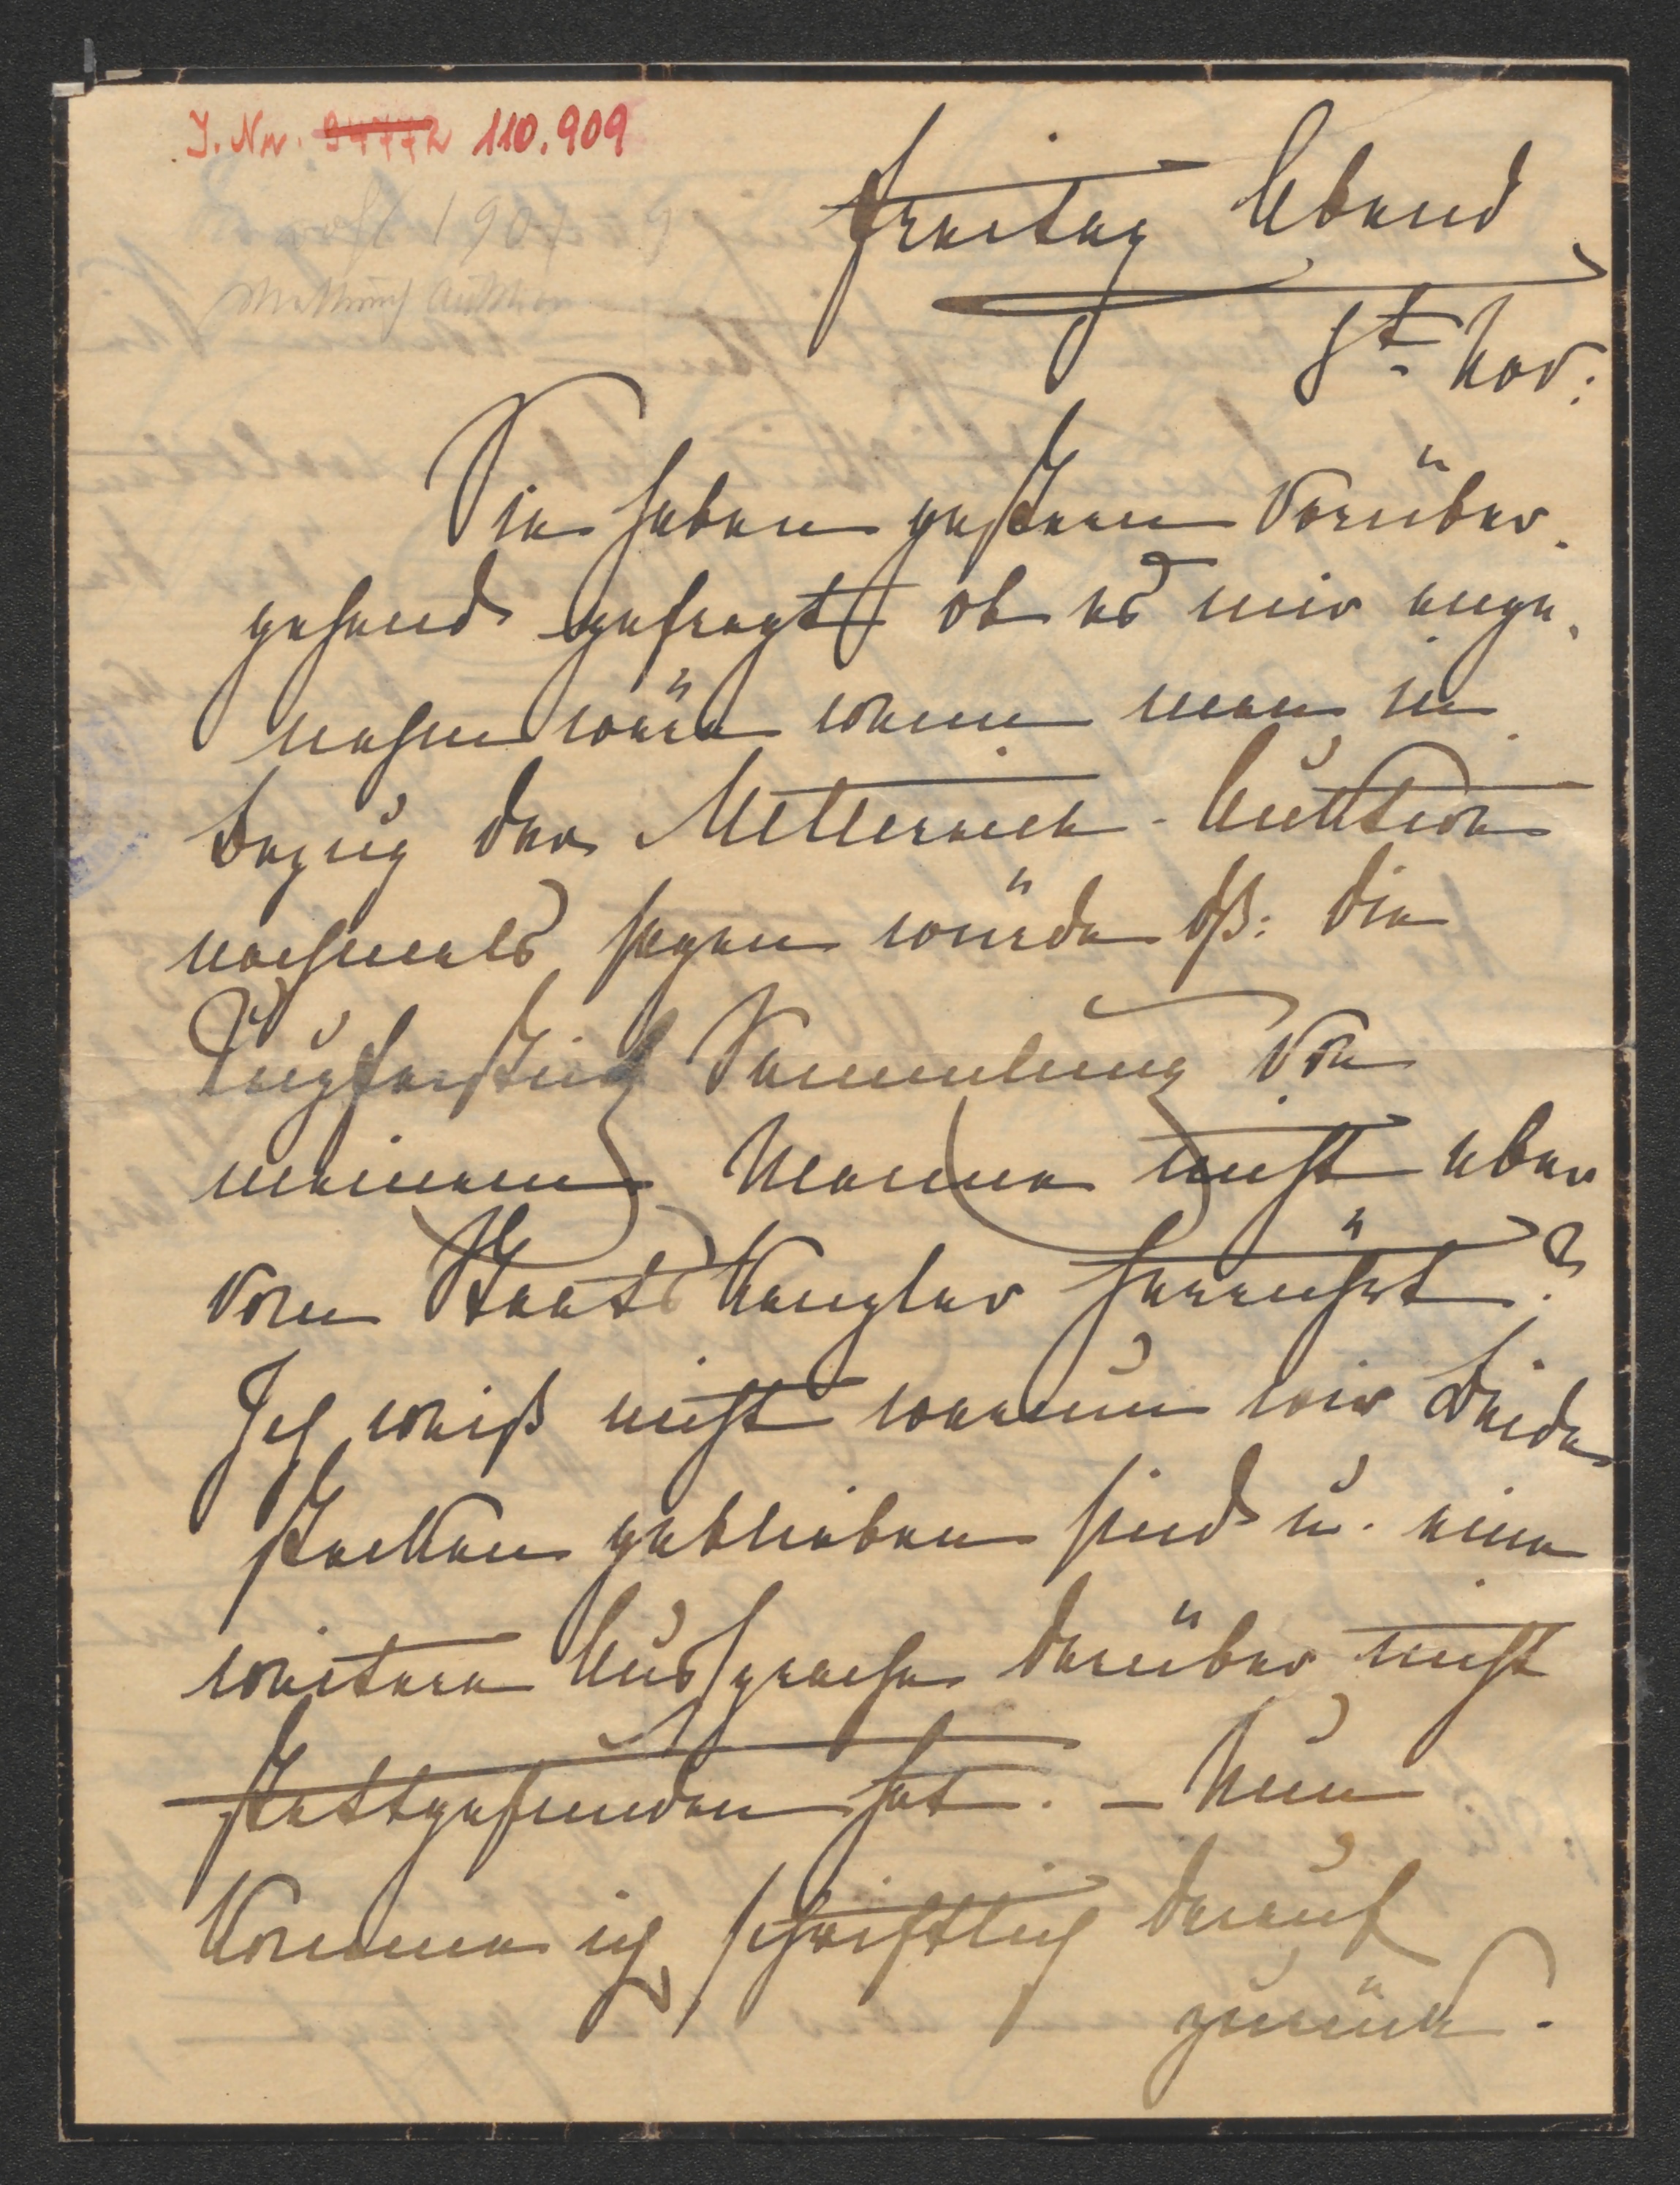 J. Nr. 94772 110.909
1907
Metternich Auktion
Freitag Abend
8t. Nov:
Sie haben gestern vorüber-
gehend gefragt ob es mir ange-
nehm wäre wenn man in
Bezug der Metternich-Auktion
nochmals sagen würde dß: die
Kupferstich Sammlung von
meinem Manne nicht aber
vom Staats Kanzler herrührt?
Ich weiß nicht warum wir Beide
stecken geblieben sind u. eine
weitere Aussprache darüber nicht
stattgefunden hat. – Nun
komme ich schriftlich darauf
zurück.